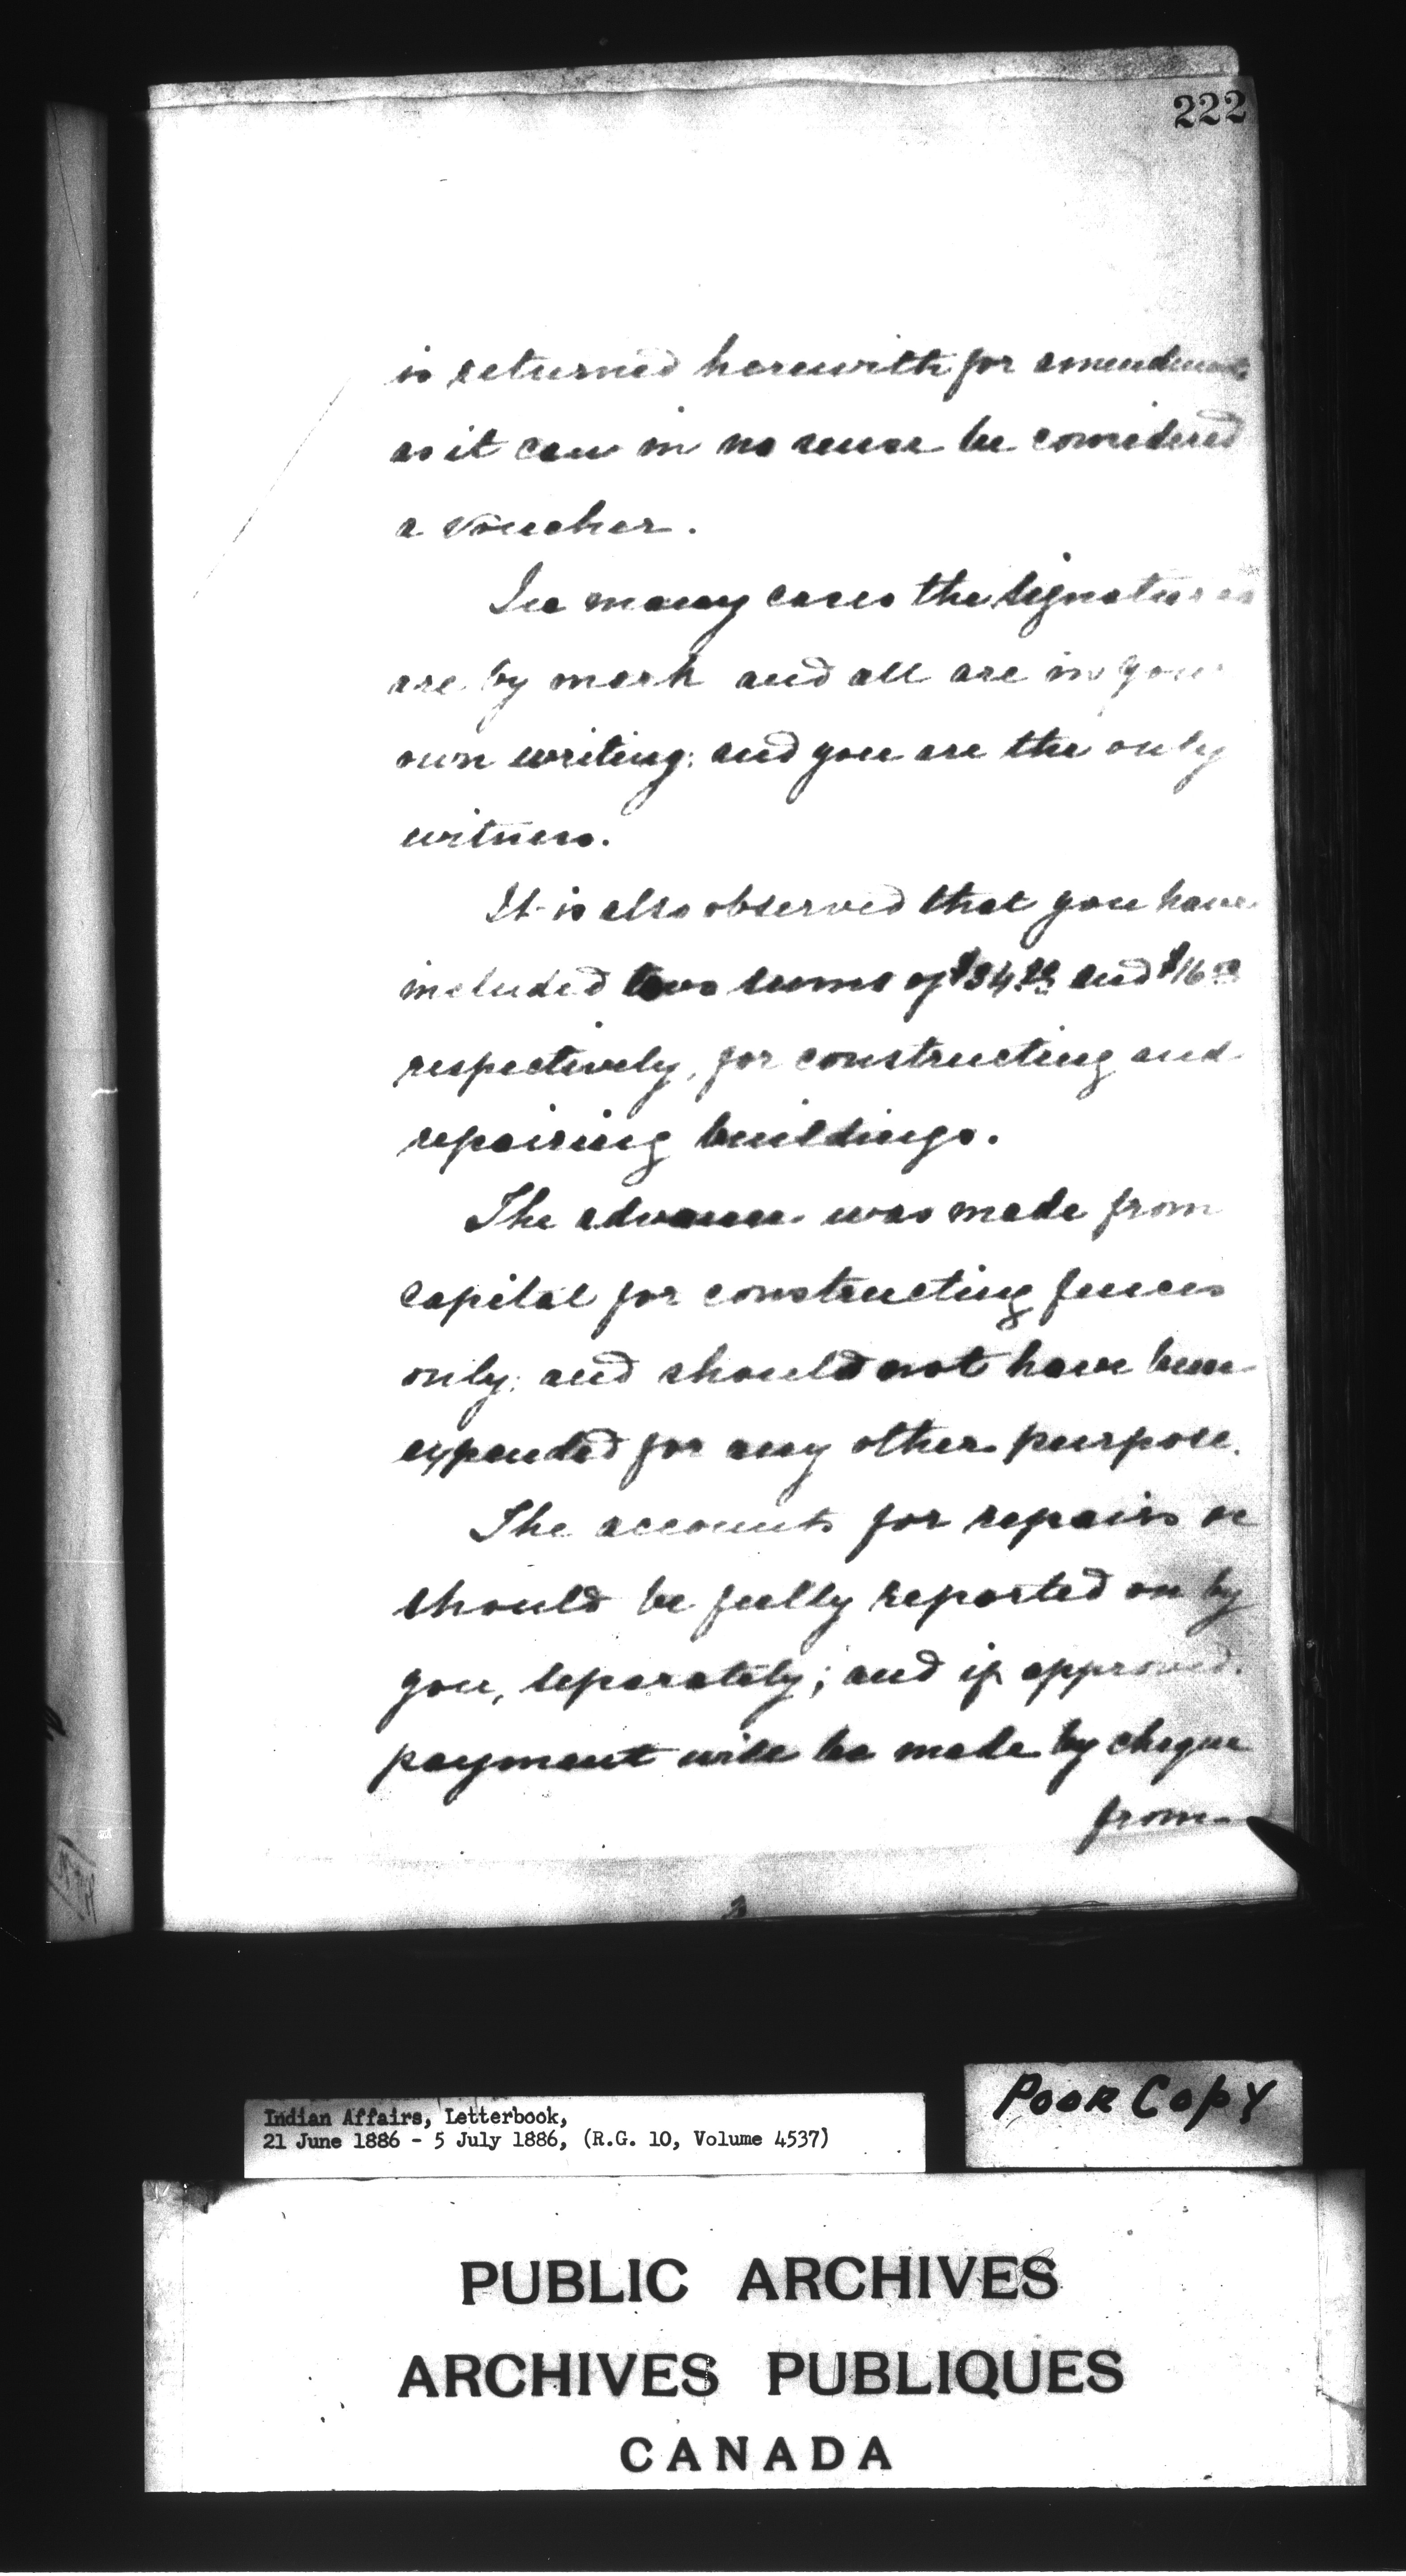 222
is returned herewith for amendment
as it can in no sense be considered
a voucher.
In many cases the signatures
are by mark and all are in your
own writing; and you are the only
witness.
It is also observed that you have
included two sums of $34 and $16
respectively, for constructing and
repairing buildings.
The advance was made from
capital for constructing fences
only; and should not have been
expended for any other purpose.
The accounts for repairs &c
should be fully reported on by
you, separately; and if approved
payment will be made by cheque
from
Indian Affairs, Letterbook,
21 June 1886 - 5 July 1886, (R.G. 10, Volume 4537)
Poor Copy
PUBLIC ARCHIVES
ARCHIVES PUBLIQUES
CANADA